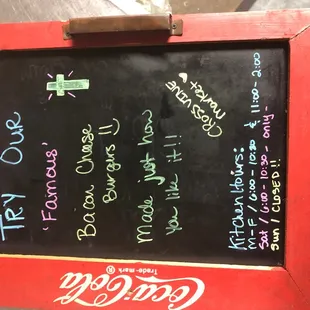 TRY OUR
'Famous'
Bacon Cheese
Burgers
Made just how
You like it!!
CROSS VINE
market
Kitchen Hours:
M-F / 6:00-10:30 & 11:00-2:00
Sat / 6:00-10:30-only-
Sun / CLOSED!!
Coca-Cola
Trade-mark ®